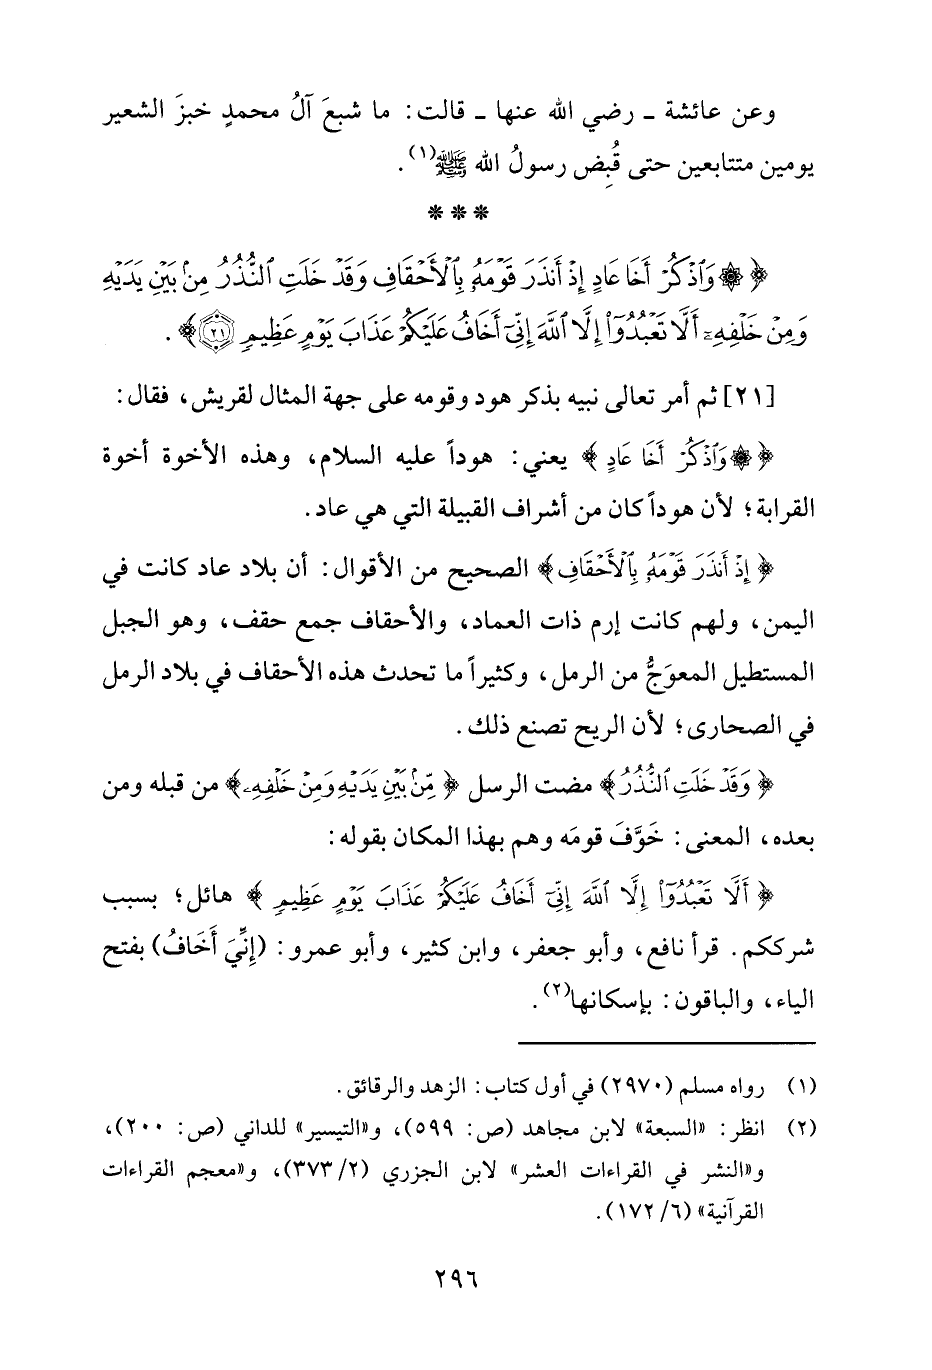 وعن عائشة ـ رضي الله عنها ـ قالت: ما شبعَ آلُ محمدٍ خبزَ الشعير
يومين متتابعين حتى قُبِض رسولُ الله ﷺ(١).
***
﴿ ۞ وَاذْكُرْ أَخَا عَادٍ إِذْ أَنذَرَ قَوْمَهُۥ بِالْأَحْقَافِ وَقَدْ خَلَتِ النُّذُرُ مِنۢ بَيْنِ يَدَيْهِ
وَمِنْ خَلْفِهِۦٓ أَلَّا تَعْبُدُوٓا۟ إِلَّا اللَّهَ إِنِّىٓ أَخَافُ عَلَيْكُمْ عَذَابَ يَوْمٍ عَظِيمٍ ۝٢١ ﴾ .
[٢١] ثم أمر تعالى نبيه بذكر هود وقومه على جهة المثال لقريش، فقال:
﴿ ۞ وَاذْكُرْ أَخَا عَادٍ ﴾ يعني: هوداً عليه السلام، وهذه الأخوة أخوة
القرابة؛ لأن هوداً كان من أشراف القبيلة التي هي عاد.
﴿ إِذْ أَنذَرَ قَوْمَهُۥ بِالْأَحْقَافِ ﴾ الصحيح من الأقوال: أن بلاد عاد كانت في
اليمن، ولهم كانت إرم ذات العماد، والأحقاف جمع حقف، وهو الجبل
المستطيل المعوَجُّ من الرمل، وكثيراً ما تحدث هذه الأحقاف في بلاد الرمل
في الصحارى؛ لأن الريح تصنع ذلك.
﴿ وَقَدْ خَلَتِ النُّذُرُ ﴾ مضت الرسل ﴿ مِّنۢ بَيْنِ يَدَيْهِ وَمِنْ خَلْفِهِۦ ﴾ من قبله ومن
بعده، المعنى: خَوَّفَ قومَه وهم بهذا المكان بقوله:
﴿ أَلَّا تَعْبُدُوٓا۟ إِلَّا اللَّهَ إِنِّىٓ أَخَافُ عَلَيْكُمْ عَذَابَ يَوْمٍ عَظِيمٍ ﴾ هائل؛ بسبب
شرككم. قرأ نافع، وأبو جعفر، وابن كثير، وأبو عمرو: (إِنِّيَ أَخَافُ) بفتح
الياء، والباقون: بإسكانها(٢).
(١) رواه مسلم (٢٩٧٠) في أول كتاب: الزهد والرقائق.
(٢) انظر: «السبعة» لابن مجاهد (ص: ٥٩٩)، و«التيسير» للداني (ص: ٢٠٠)،
و«النشر في القراءات العشر» لابن الجزري (٢/ ٣٧٣)، و«معجم القراءات
القرآنية» (٦/ ١٧٢).
٢٩٦